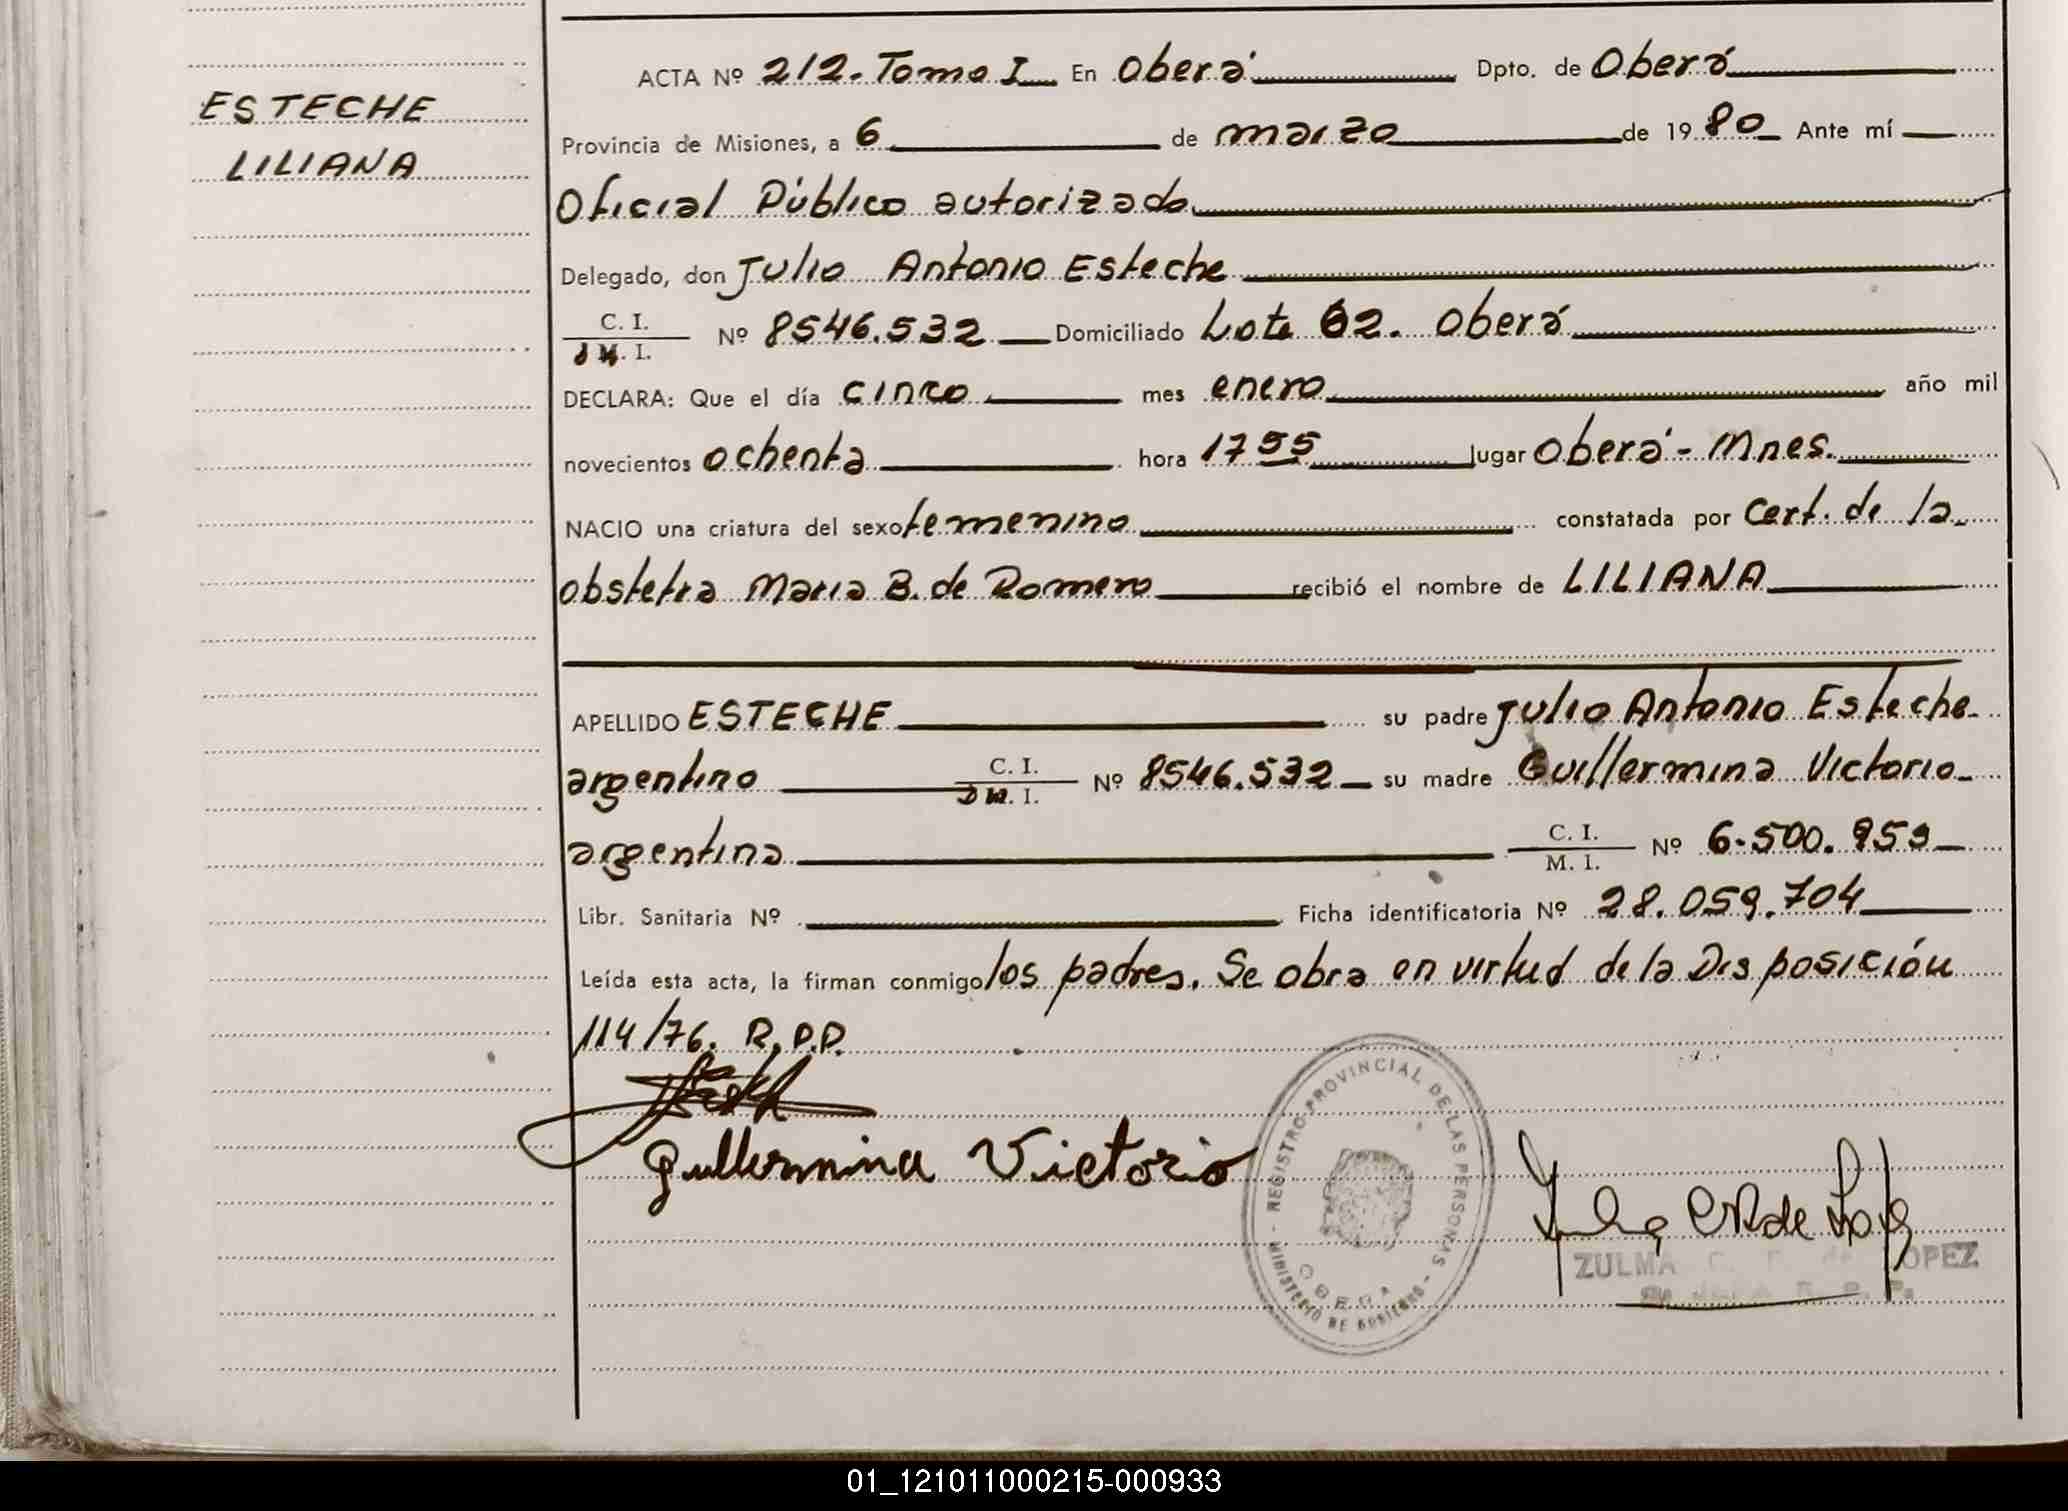 ESTECHE
LILIANA
ACTA Nº 212. Tomo I En Oberá Dpto. de Oberá
Provincia de Misiones, a 6 de marzo de 1980 Ante mí
Oficial Público autorizado
Delegado, don Julio Antonio Esteche
C. I.
D M. I. Nº 8546.532 Domiciliado Lote 62. Oberá
DECLARA: Que el día cinco mes enero año mil
novecientos ochenta hora 17 55 lugar Oberá - Mnes.
NACIO una criatura del sexo femenino constatada por Cert. de la
Obstetra Maria B. de Romero recibió el nombre de LILIANA
APELLIDO ESTECHE su padre Julio Antonio Esteche
argentino C. I. D M. I. Nº 8546.532 su madre Guillermina Victorio
argentina C. I. M. I. Nº 6.500.959
Libr. Sanitaria Nº Ficha identificatoria Nº 28.059.704
Leída esta acta, la firman conmigo los padres. Se obra en virtud de la Disposición
114/76. R.P.P.
Guillermina Victorio
REGISTRO PROVINCIAL DE LAS PERSONAS
OBERA
MINISTERIO DE GOBIERNO
ZULMA de LOPEZ
01_121011000215-000933